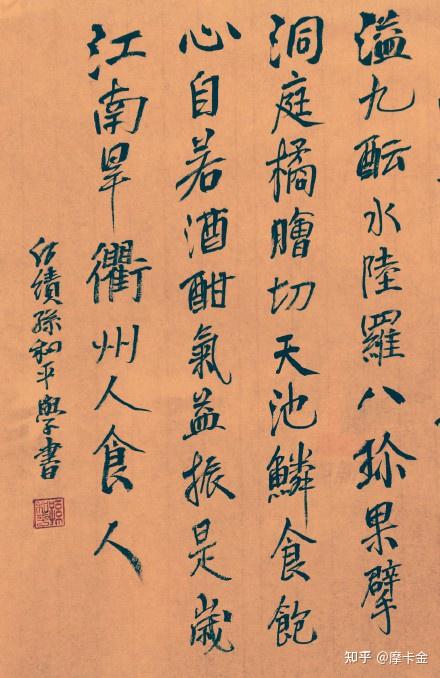 溢九酝水陸羅八珍果擘
洞庭橘膾切天池鱗食飽
心自若酒酣氣益振是歲
江南旱衢州人食人
績孫和平學書
知乎 @摩卡金